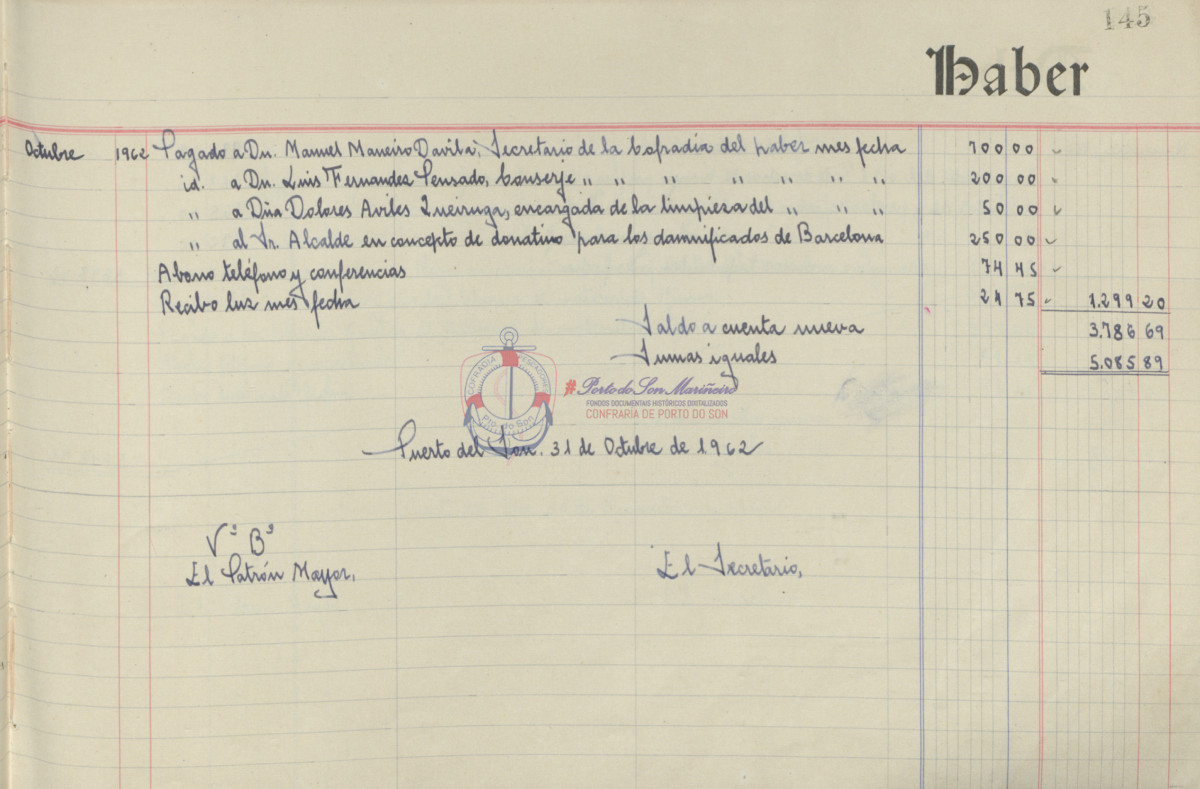 145
Haber
Octubre 1962 Pagado a Dn. Manuel Maneiro Davila, Secretario de la Cofradía del haber mes fecha 700 00
id. a Dn. Luis Fernandez Pensado, Conserje " " " " " " " 200 00
" a Dña Dolores Aviles Queiruga, encargada de la limpieza del " " " 50 00
" al Sr. Alcalde en concepto de donativo para los damnificados de Barcelona 250 00
Abono teléfono y conferencias 74 45
Recibo luz mes fecha 24 75 1.299 20
Saldo a cuenta nueva 3.786 69
Sumas iguales 5.085 89
COFRADÍA PESCADORES
Pto. do Son
#Porto do Son Mariñeiro
FONDOS DOCUMENTAIS HISTÓRICOS DIXITALIZADOS
CONFRARÍA DE PORTO DO SON
Puerto del Son. 31 de Octubre de 1962
Vº Bº
El Patrón Mayor,
El Secretario,